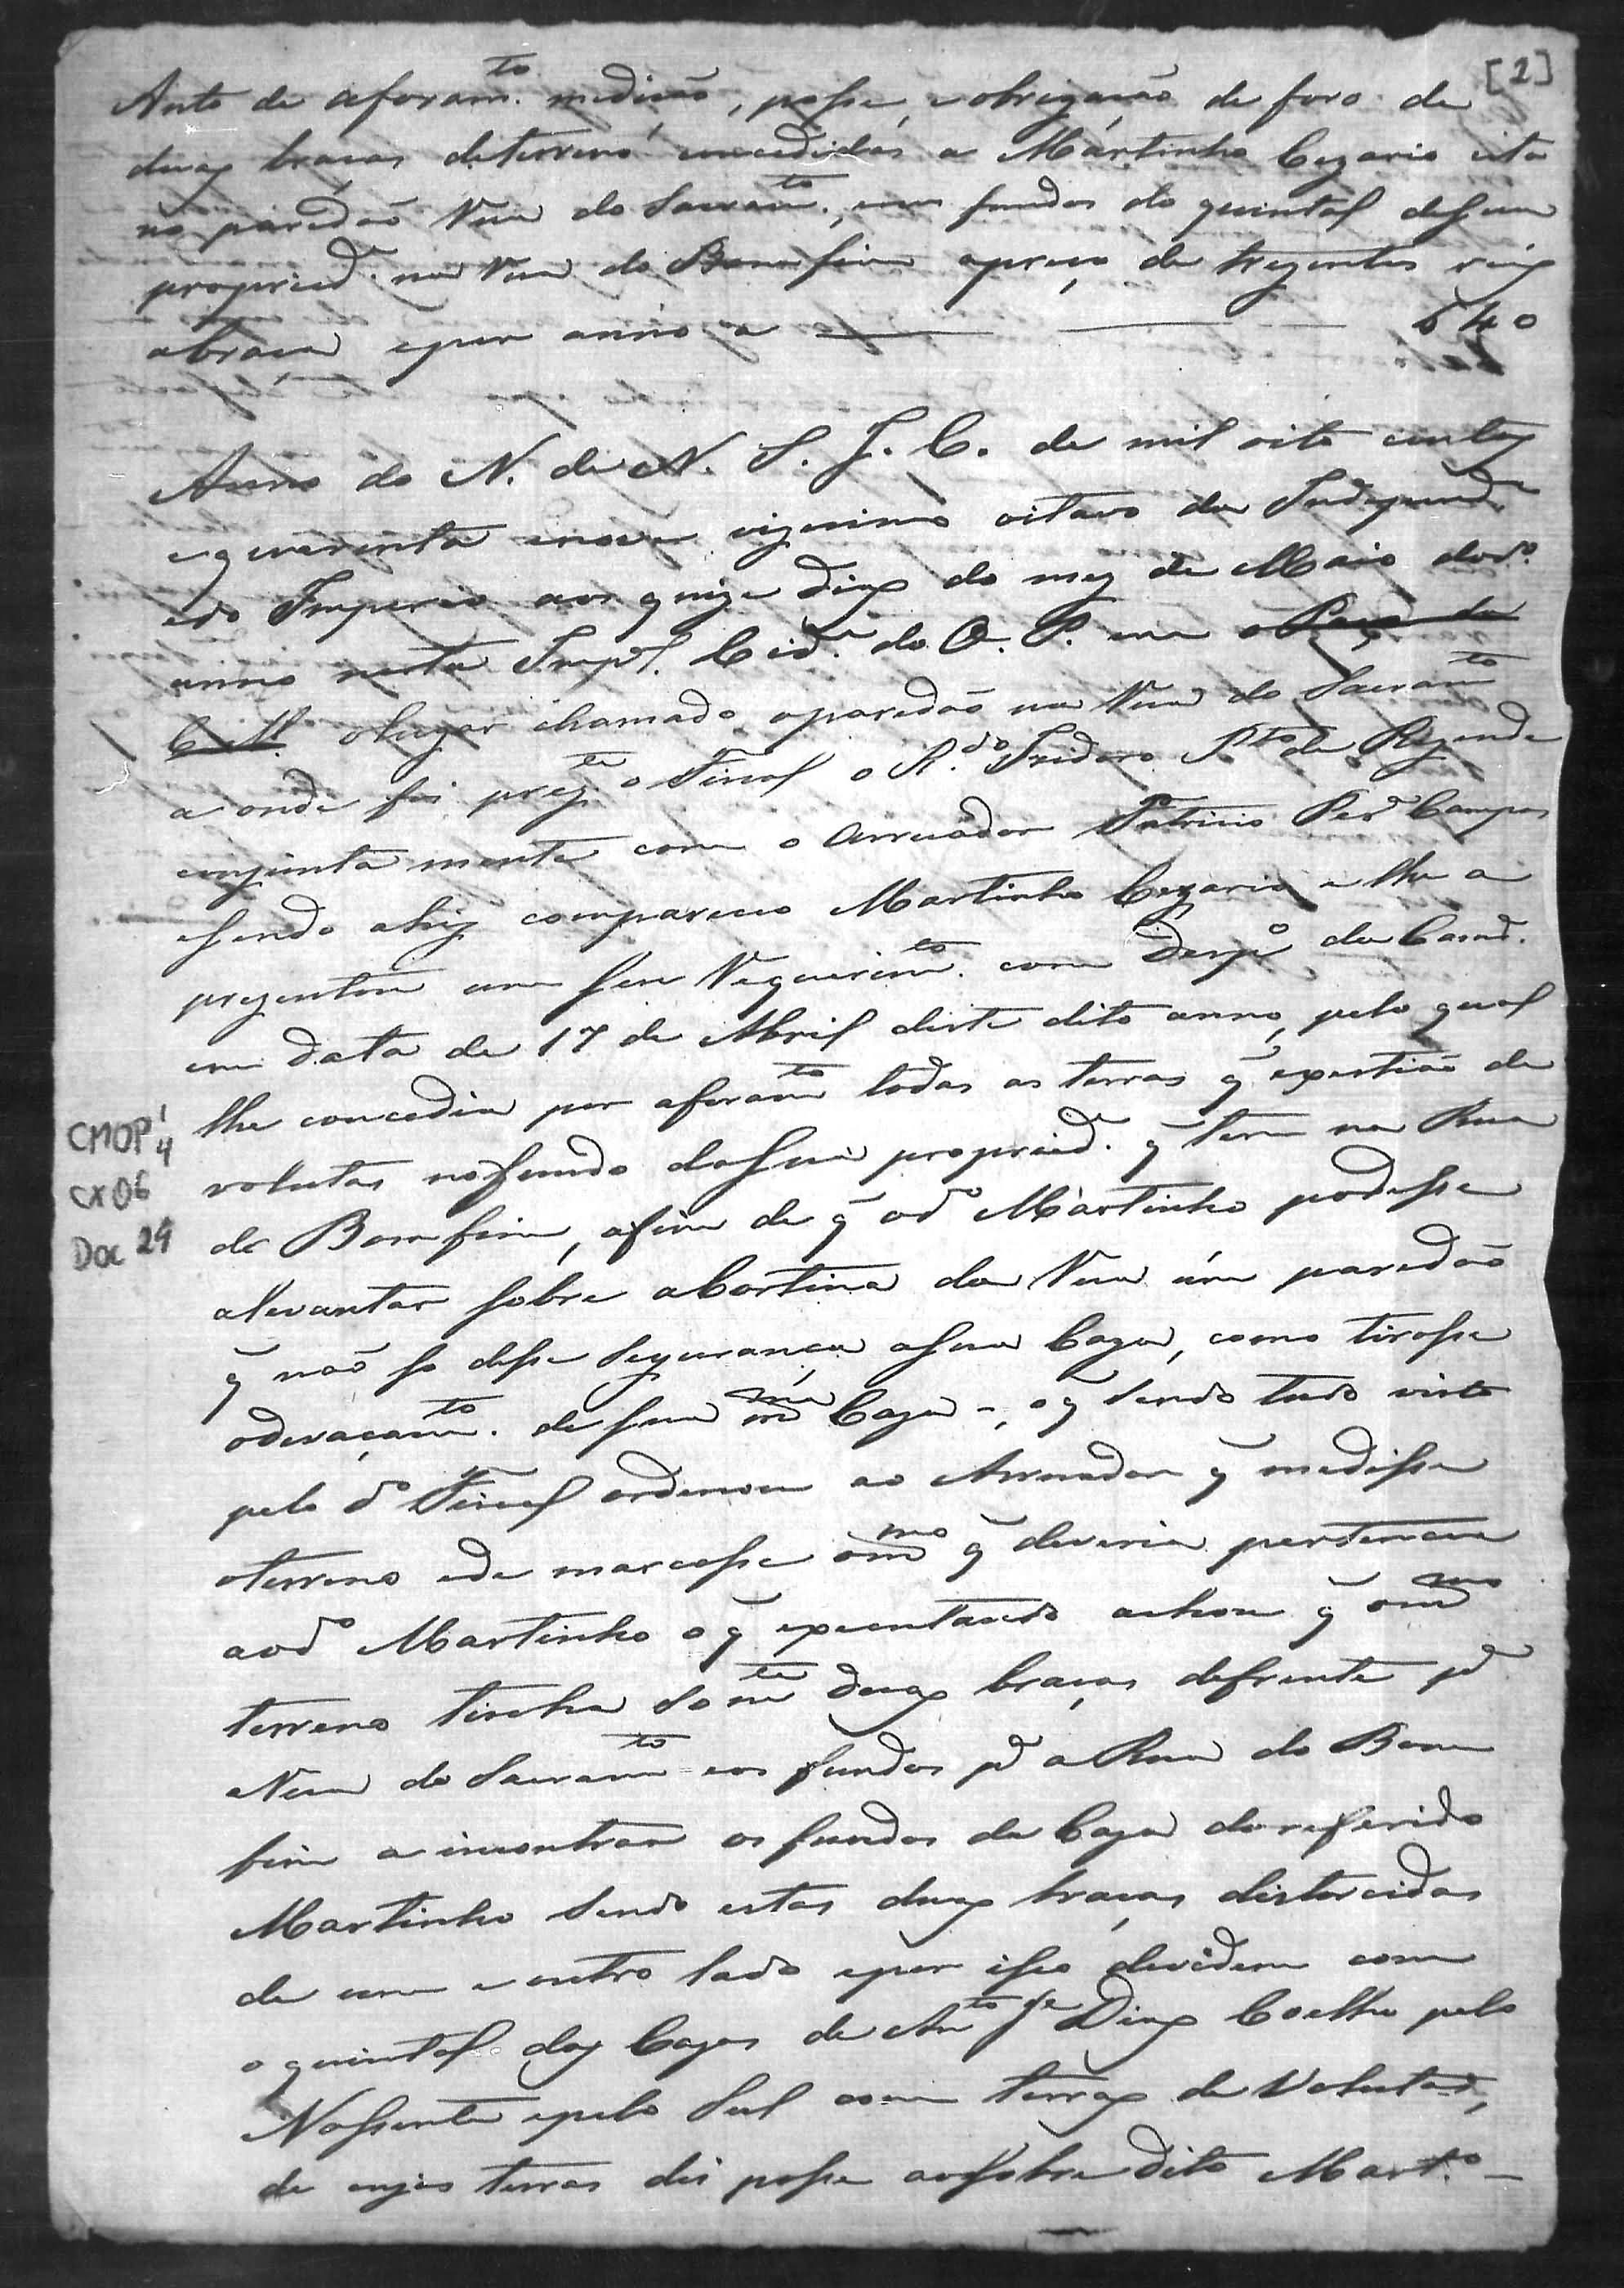 [2]
Auto de aforam.to medição, posse, e obrigação de foro de
duas braças de terreno concedidas a Martinho Cezario cita
no paredão Rua do Sacram.to, em fundos do quintal de sua
propried.e na Rua do Bom fim a preço de trezentos reis
a braça e por anno a — — — 640
Anno do N. de N. S. J. C. de mil oito centos
e quarenta e nove vigesimo oitavo da Independ.a
e do Imperio aos quinze dias do mez de Maio do d.o
anno nesta Imp.l Cid.e do O. P. em o Paço da
C. M. o lugar chamado o paredão na Rua do Sacram.to
a onde foi prez.te o Fiscal o R.do Izidoro P.to de Rezende
conjunta mente com o Arruador Patricio Per.a Campos
e sendo ahy compareceo Martinho Cezario e lhe a
prezentou um seu Requerim.to com Desp.o da Camr.a
em data de 17 de Abril deste dito anno, pelo qual
lhe concedia por aforam.to todas as terras q̃ expestião de
volutas no fundo da sua propried.e q̃ tem na Rua
do Bom fim, a fim de q̃ o d.o Martinho podesse
alevantar sobre a Cortina da Rua úm paredão
q̃ não só desse segurança a sua Caza, como tirasse
o devaçam.to de sua m.ma Caza -, o q̃ sendo tudo visto
pelo d.o Fiscal ordenou ao Arruador q̃ medisse
o terreno e de marcasse o m.mo q̃ deveria pertencer
ao d.o Martinho o q̃ executando achou q̃ o m.mo
terreno tinha som.te duas braças de frente p.a
a Rua do Sacram.to e os fundos p.a a Rua do Bom
fim a incontrar os fundos da Caza do referido
Martinho sendo estas duas braças distorcidas
de um e outro lado e por isso devidem com
o quintal das Cazas de An.to J.e Dias Coelho pelo
Nassente e pelo Sul com terras de Volutas,
de cujas terras dei posse ao sobre dito Mart.o -
CMOP 1
4
CX 06
Doc 24